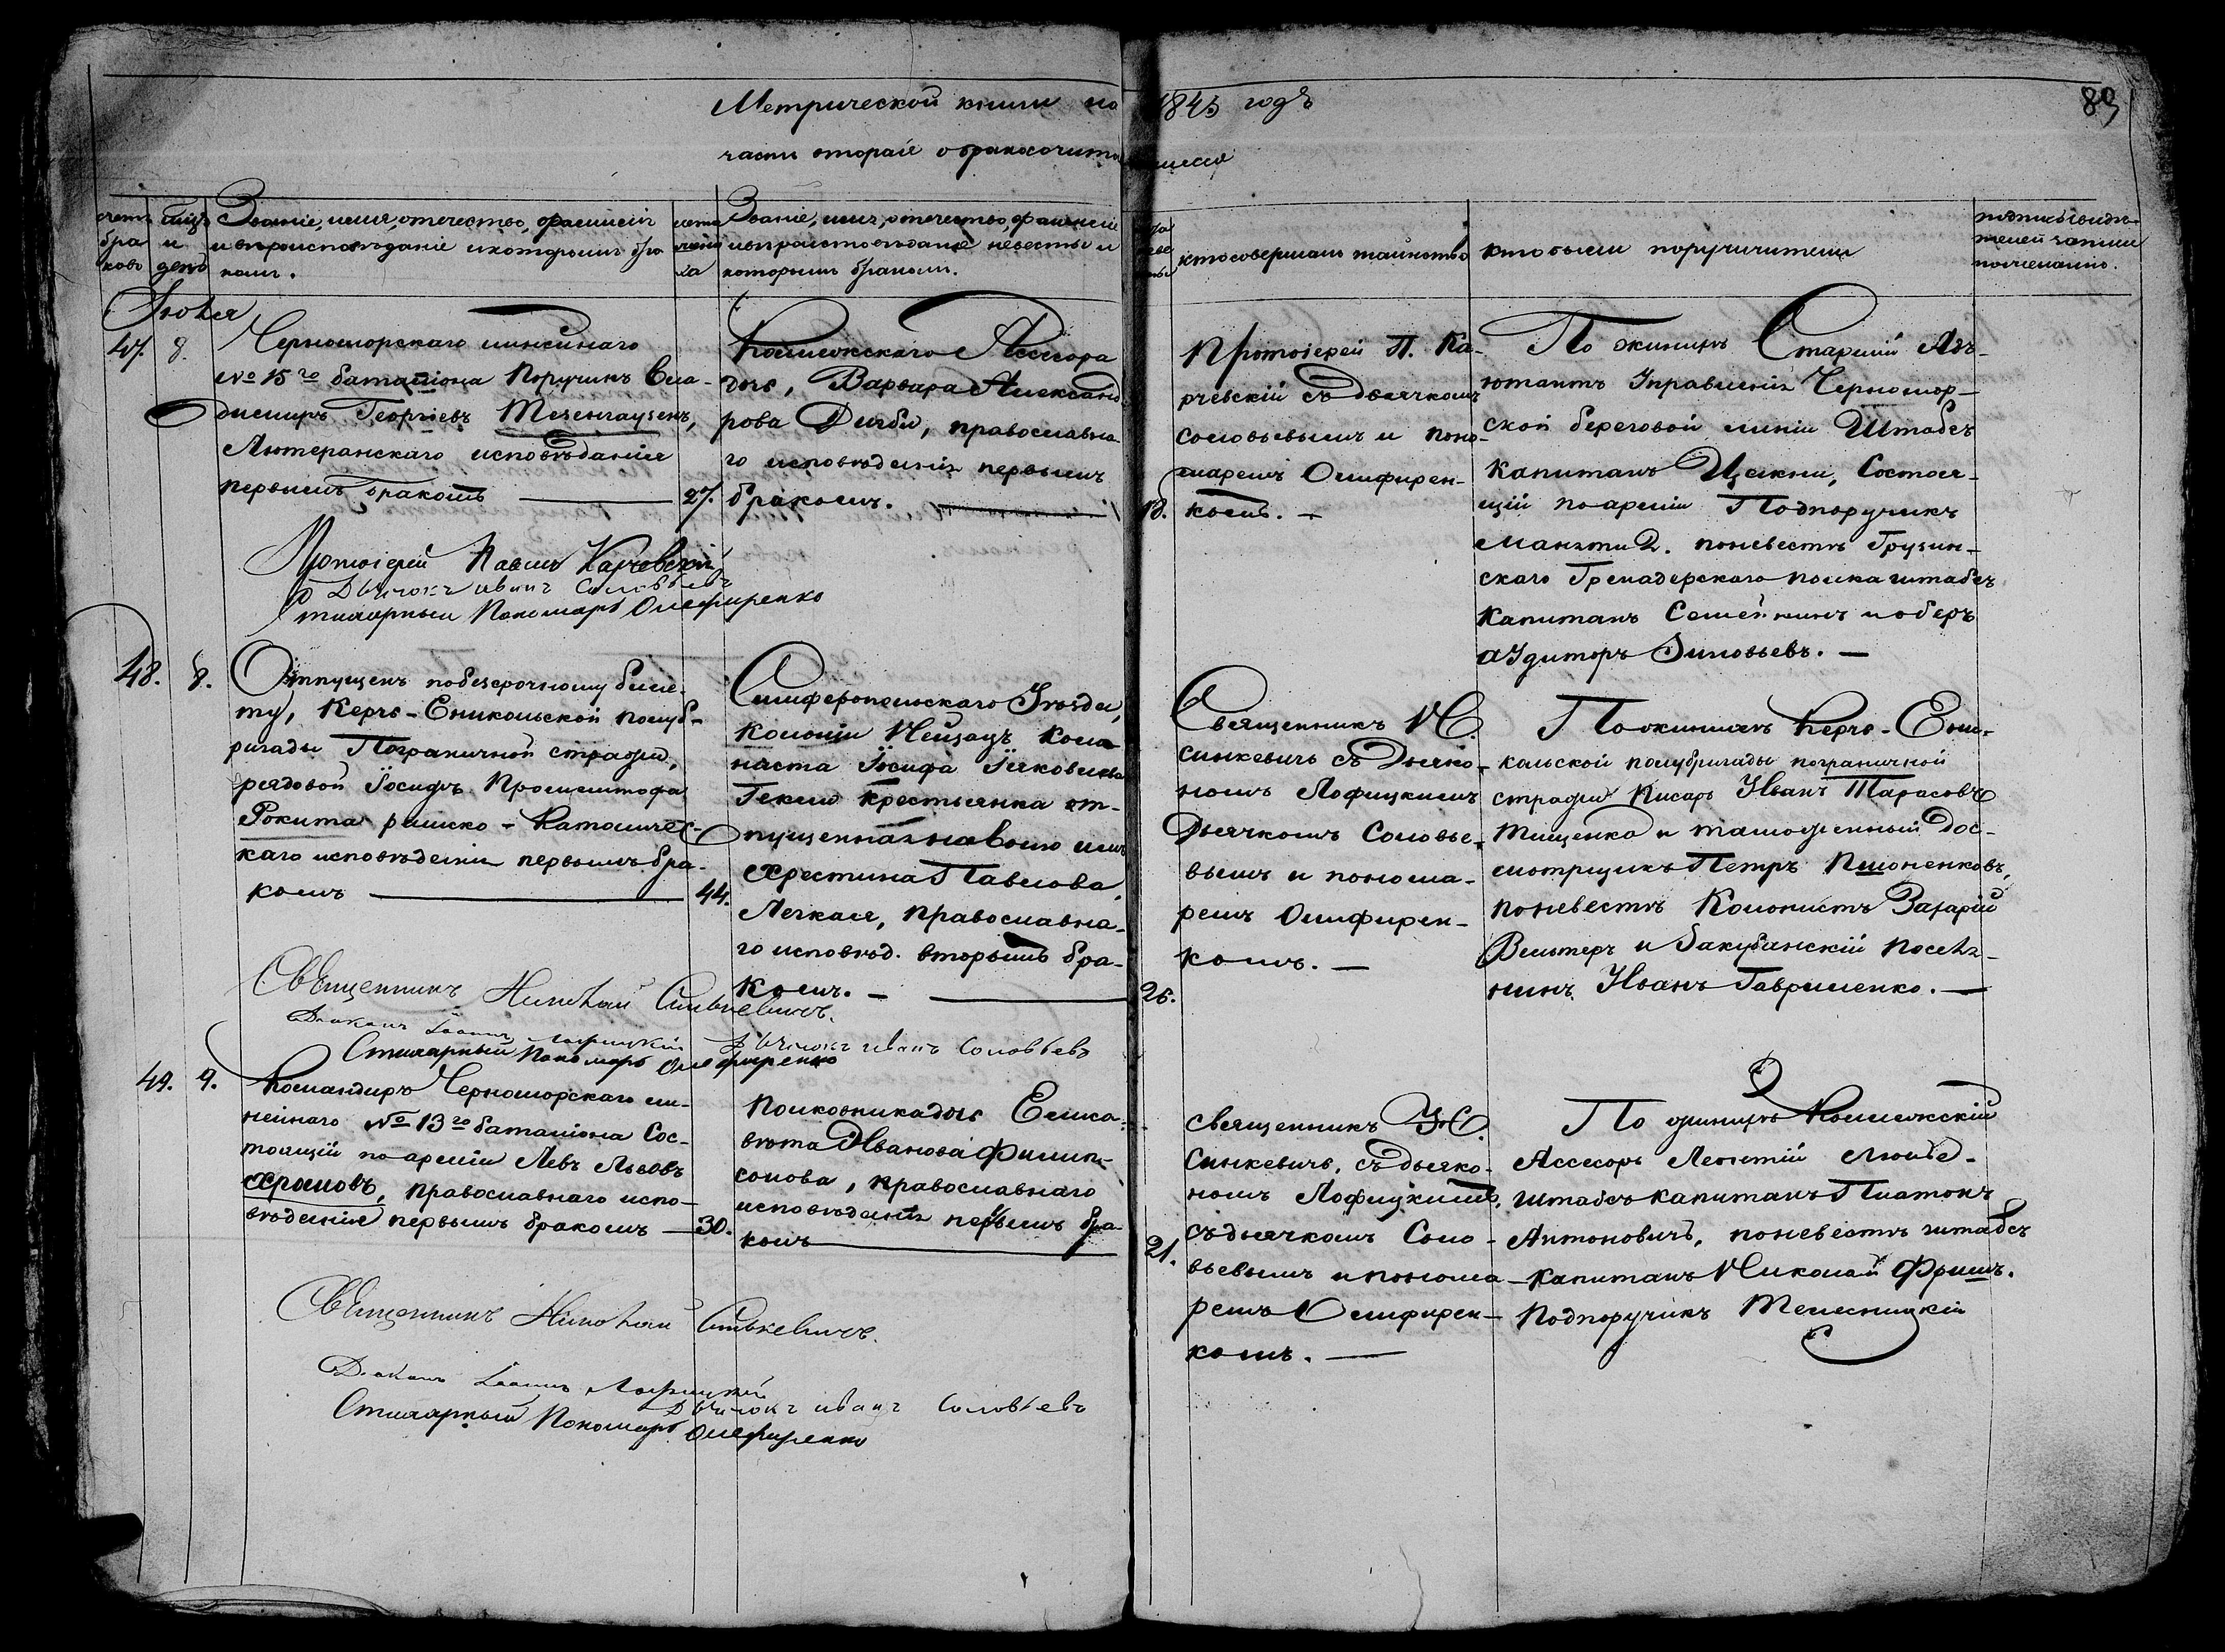 Метрической книги на 1845 годъ
89
части вторая о бракосочитавшихся
счетъ браковъ
мцъ и день
Званіе, имя, отечество, фамилія
и вѣроисповѣданіе и которымъ бра-
комъ.
лета жениха
Званіе, имя, отечество, фамилія
и вѣроисповѣданіе невесты и
которымъ бракомъ.
кто совершалъ таинство
кто были поручители
подписи свидѣ-
телей записи
по желанію.
Іюля
47. 8.
Черноморскаго линѣйнаго
№ 15го баталіона Поручикъ Вла-
диміръ Георгіевъ Тезенгаузенъ,
Лютеранскаго исповѣданія
первымъ бракомъ — 27.
Коллежскаго Ассесора
дочь, Варвара Александ-
рова Дигби, православна-
го исповѣданія первымъ
бракомъ. — 18.
Протоіерей П. Ка-
рчевскій съ дьячкомъ
Соловьевымъ и поно-
маремъ Олифирен-
комъ. —
По жинихѣ Старшій Адъ-
ютантъ Управленія Черномор-
ской береговой линіи Штабсъ
Капитанъ Цакни, Состоя-
щій по арміи Подпоручикъ
Манати 2. по невестѣ Грузин-
скаго Гренадерскаго полка штабсъ
Капитанъ Семейкинъ и оберъ
аудиторъ Зиновьевъ. —
Протоіерей Павелъ Карчевскій
Дьячокъ иванъ Соловьевъ
Стихарный Пономарь Олефиренко
48. 8.
Отпущенъ по безсрочному биле-
ту, Керчь-Еникольской полуб-
ригады Пограничной стражи,
рядовой Іосифъ
Рокита римско-Католичес-
каго исповѣденія первымъ бра-
комъ — 44.
Симферопольскаго Уѣзда,
Колоніи Нейзацъ Коло-
ниста Іосифа Іяковлева
Гекель крестьянка от-
пущенная на волю имъ
Хрестина Павлова
Легкая, православна-
го исповѣд. вторымъ бра-
комъ. — 26.
Священникъ Н.
Синкевичъ съ Дьяко-
номъ Лофицкимъ
Дьячкомъ Соловье-
вымъ и понома-
ремъ Олифирен-
комъ. —
По жинихѣ Керчь-Ени-
кальской полубригады пограничной
стражи Писарь Иванъ Тарасовъ
Тищенко и таможенный дос-
мотрщикъ Петръ Пшоненковъ,
по невестѣ Колонистъ Захарій
Вельтеръ и Закубанскій поселя-
нинъ Иванъ Гавриленко. —
Священникъ Николай Синькевичъ.
Діаконъ Іоаннъ Лофицкій Дьячокъ иванъ Соловьевъ
Стихарный Пономарь Олефиренко
49. 9.
Командиръ Черноморскаго ли-
нейнаго № 13го баталіона Сос-
тоящій по арміи Левъ Львовъ
Храмовъ, православнаго испо-
вѣденія первымъ бракомъ — 30.
Полковника дочь Елиса-
вета Иванова Филип-
сонова, православнаго
исповѣденія первымъ бра-
комъ — 21.
Священникъ Н.
Синкевичъ, съ дьяко-
номъ Лофицкимъ,
съ дьячкомъ Соло-
вьевымъ и понома-
ремъ Олифирен-
комъ. —
По жинихѣ Коллежскій
Ассесоръ Леонтій Люде-
штабсъ капитанъ Платонъ
Антоновичъ, по невестѣ штабсъ
Капитанъ Николай Фришъ.
Подпоручикъ Телесницкій
Священникъ Николай Синькевичъ.
Діаконъ Іоаннъ Лофицкій
Дьячокъ иванъ Соловьевъ
Стихарный Пономарь Олефиренко